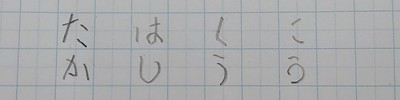 た は く こ
か じ う う